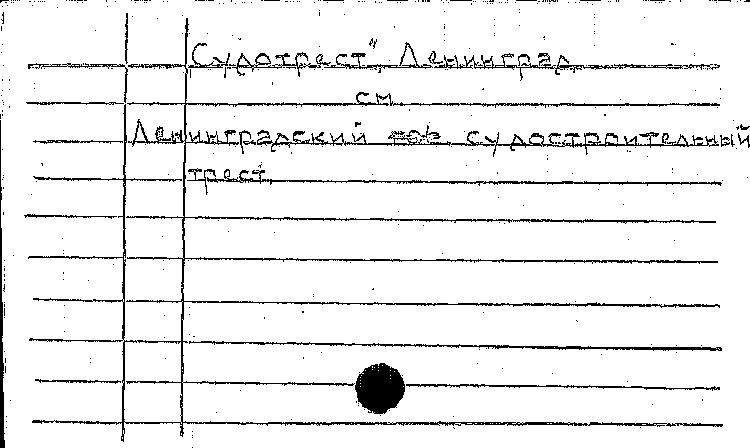 „Судотрест", Ленинград
см.
Ленинградский судостроительный
трест.